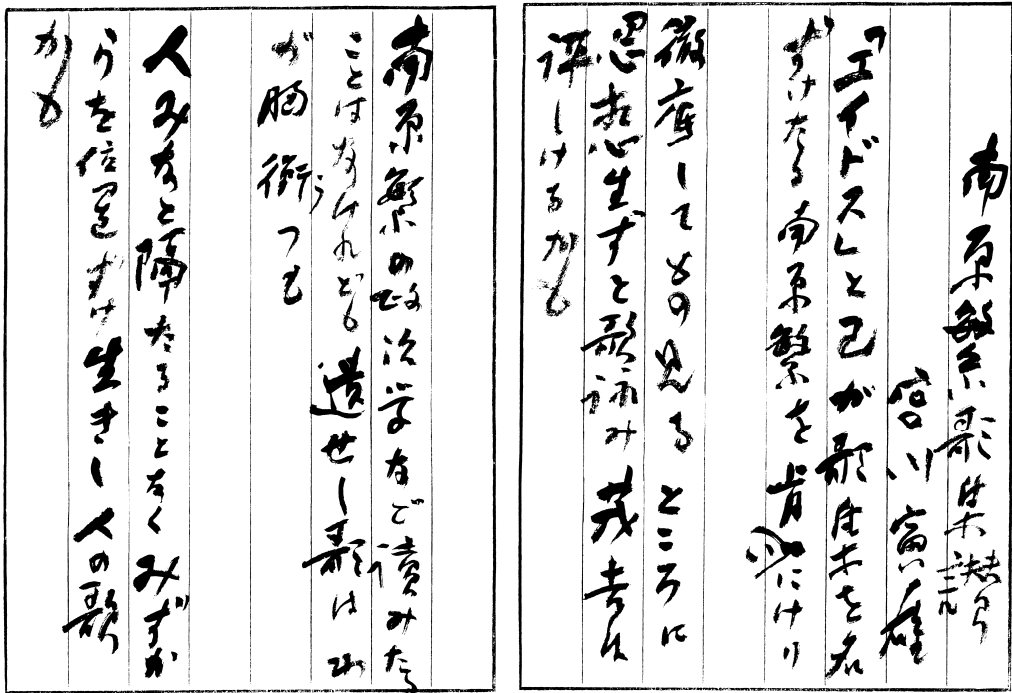 南原繁歌集
宮川寅雄
「エイドス」と己が歌集を名
づけたる南原繁を肯にけり
徹底してもの見るところに
思想生ずと歌詠み茂吉は
評しけるかも
南原繁の政治学など読みたる
ことはなけれども遺せし歌はわ
が胸衝つも
人みなと隔たることなくみずか
らを位置ずけ生きし人の歌
かも